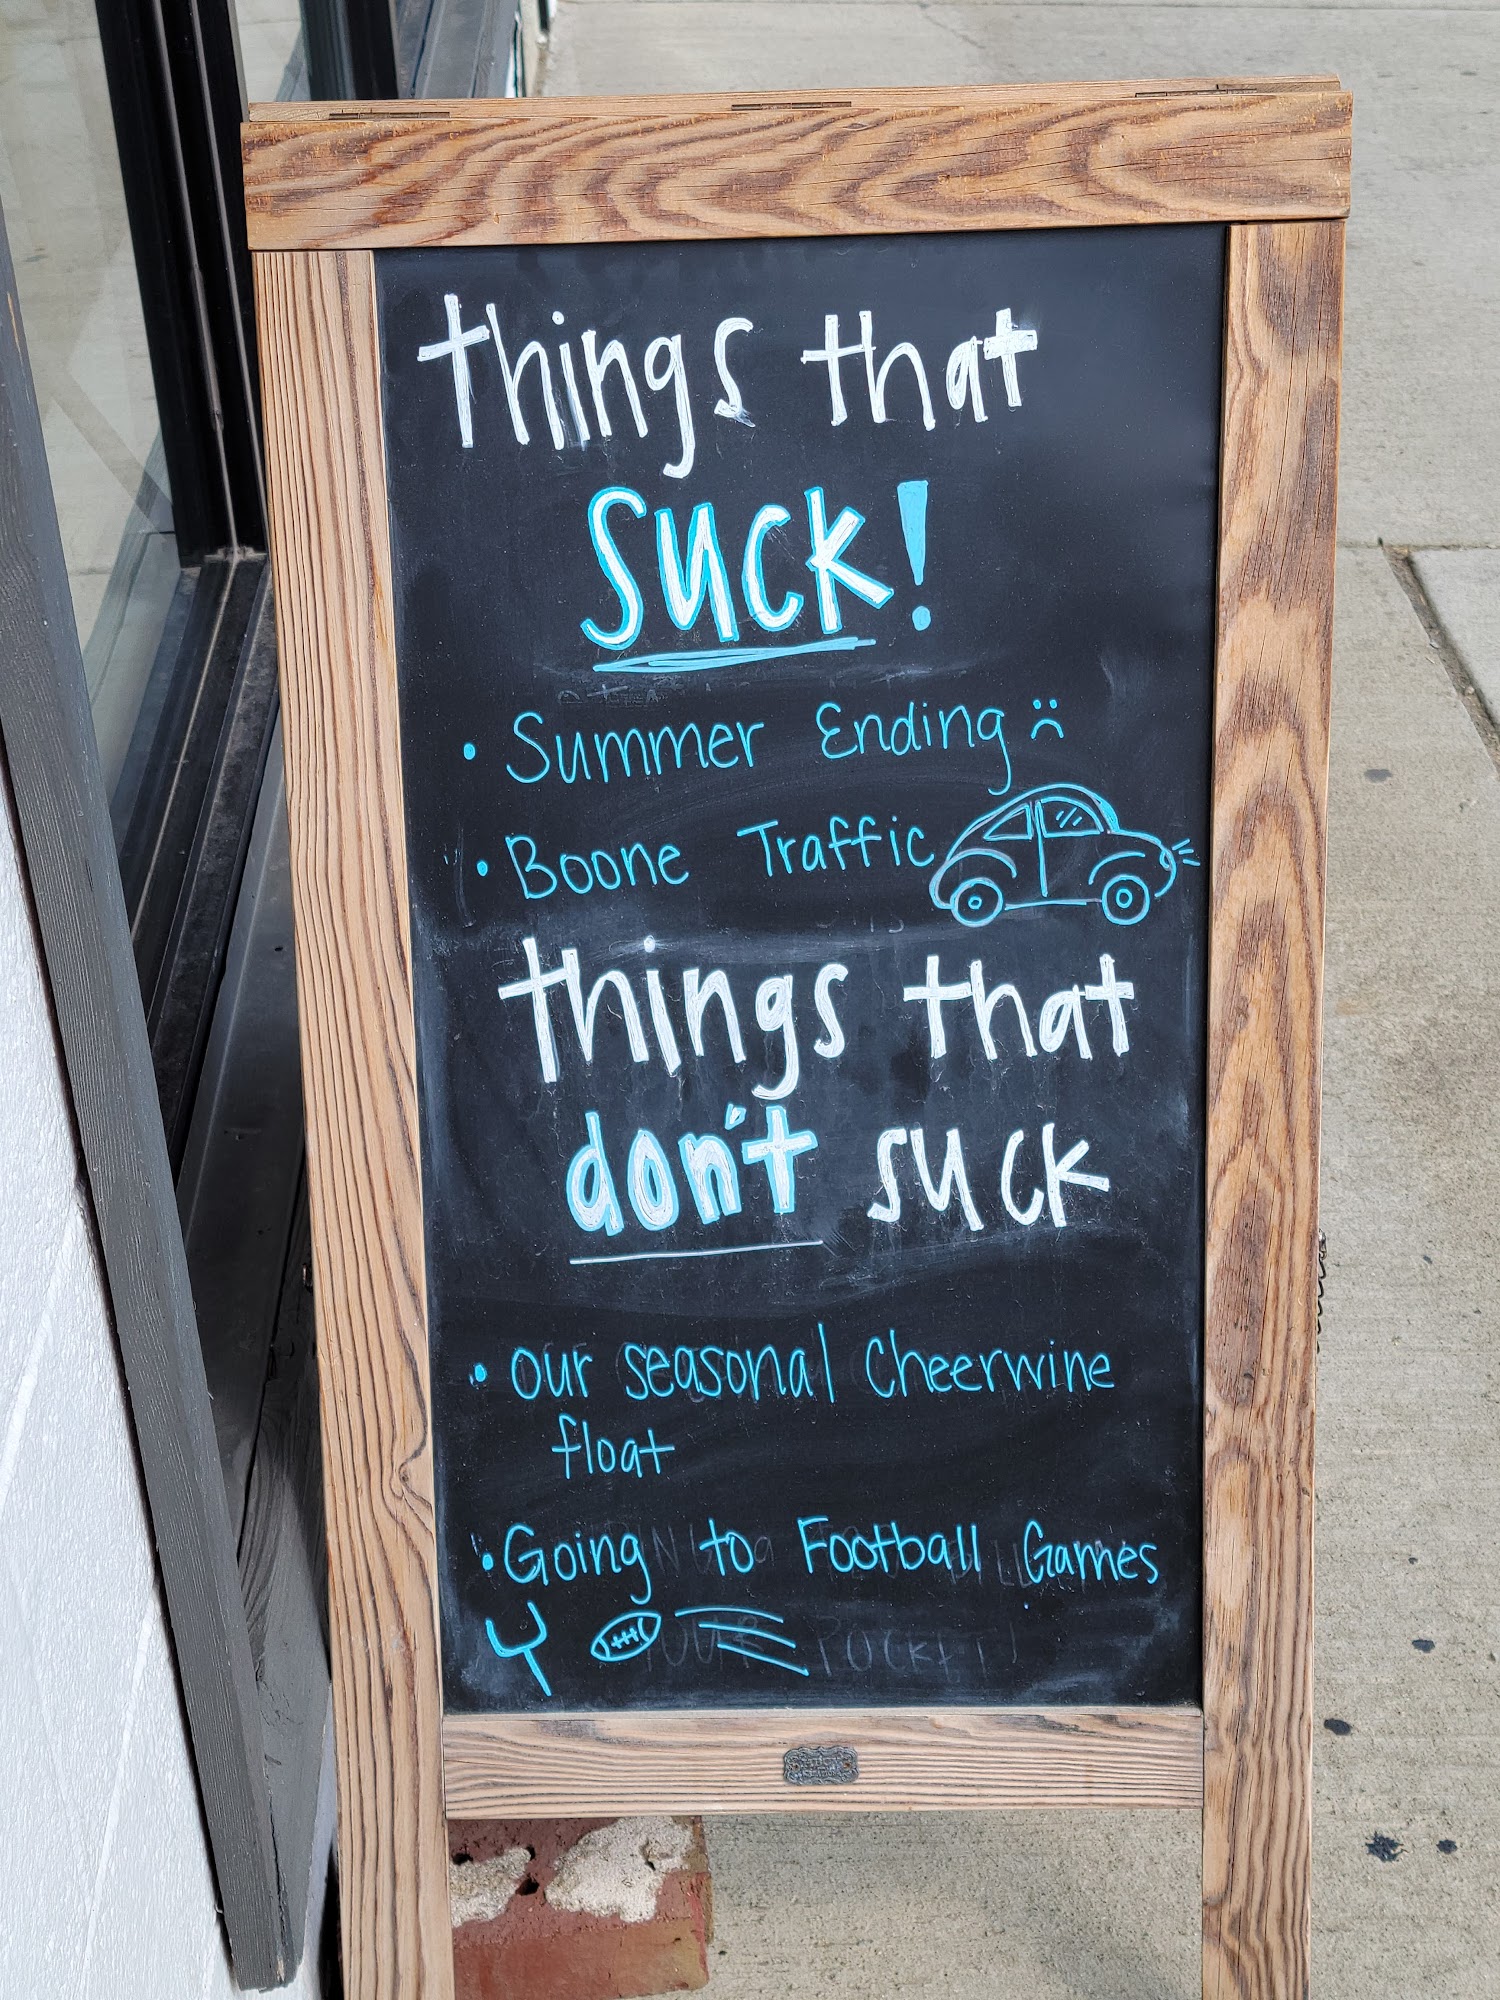 things that
suck!
• Summer Ending :(
• Boone Traffic
things that
don't suck
• our seasonal Cheerwine
float
• Going to Football Games
YOUR POCKET!